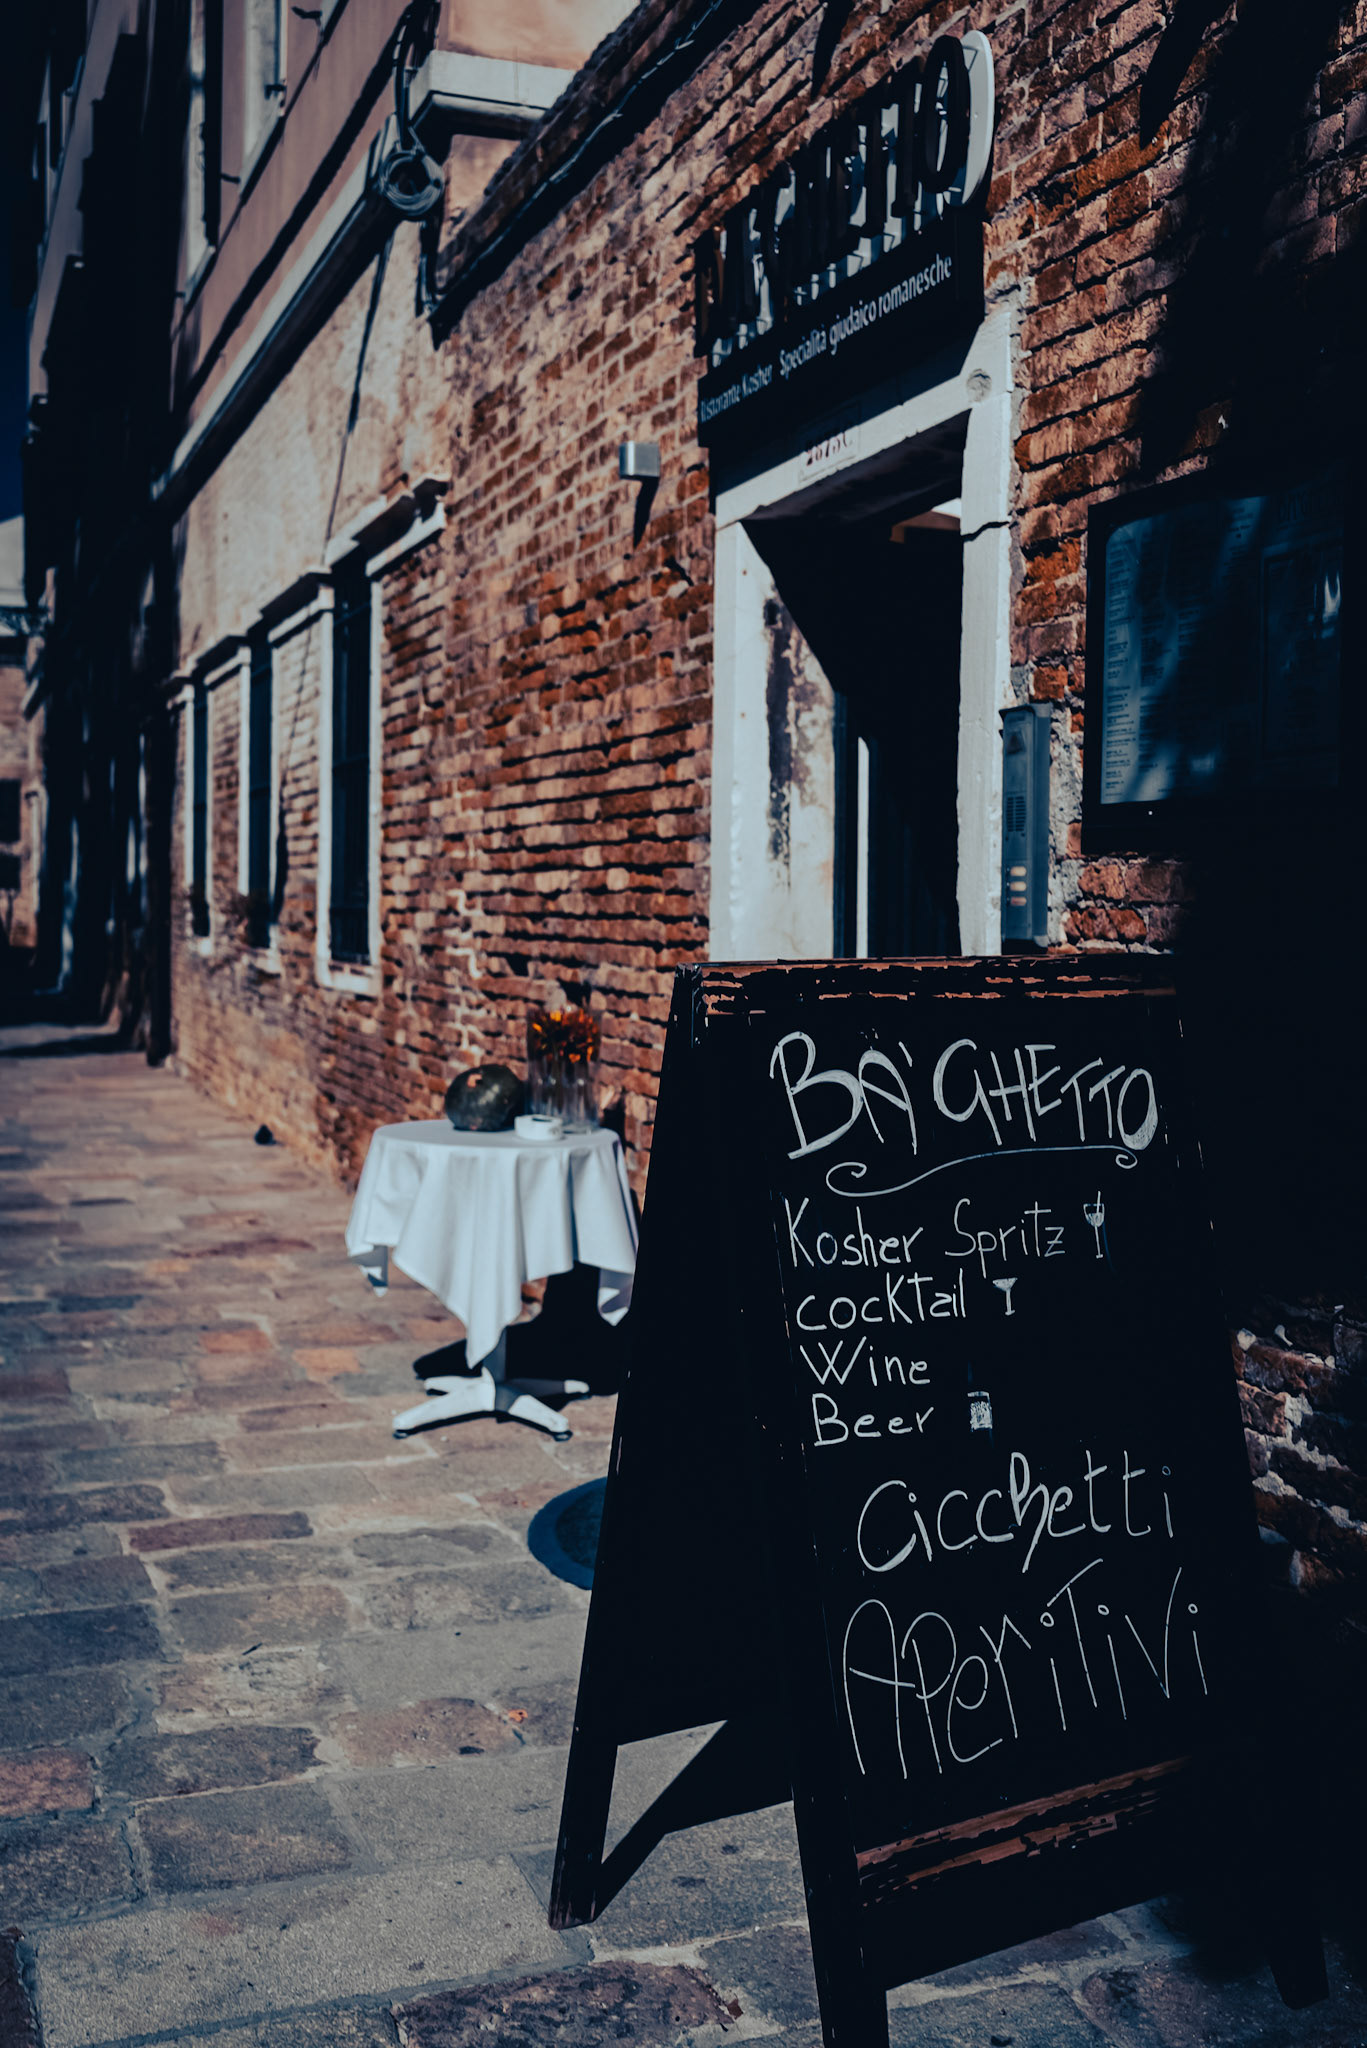 BA'GHETTO
Ristorante Kosher Specialità giudaico romanesche
2873C
BA'GHETTO
Kosher Spritz
cocktail
Wine
Beer
Cicchetti
APeriTiVi